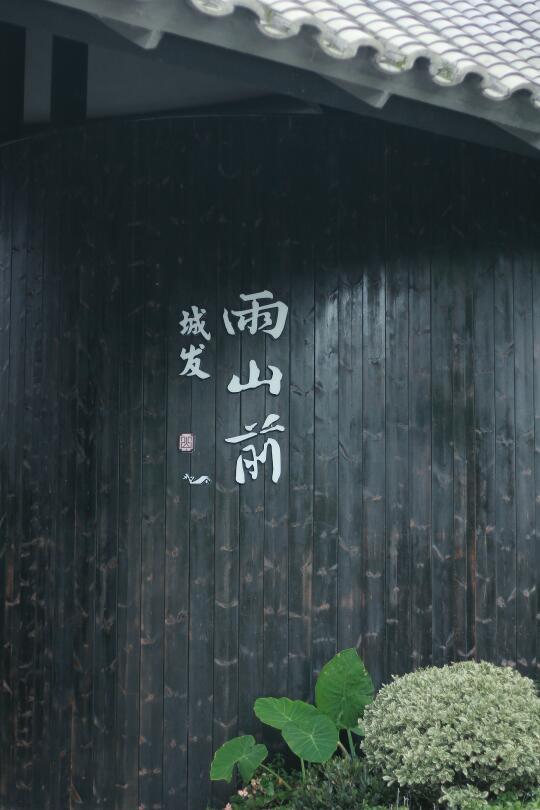 雨山前
城发